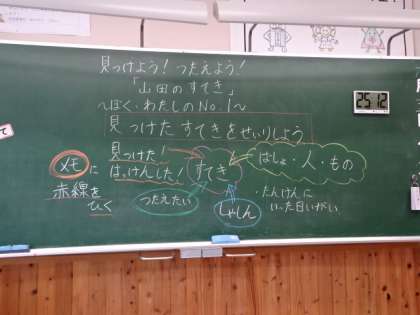 見つけよう！つたえよう！
「山田のすてき」
～ぼく・わたしのNo.1～
見つけたすてきをせいりしよう
25 12
メモに
赤線を
ひく
見つけた！
はっけんした！
すてき
ばしょ・人・もの
つたえたい
しゃしん
・たんけんに
いった日いがい
て